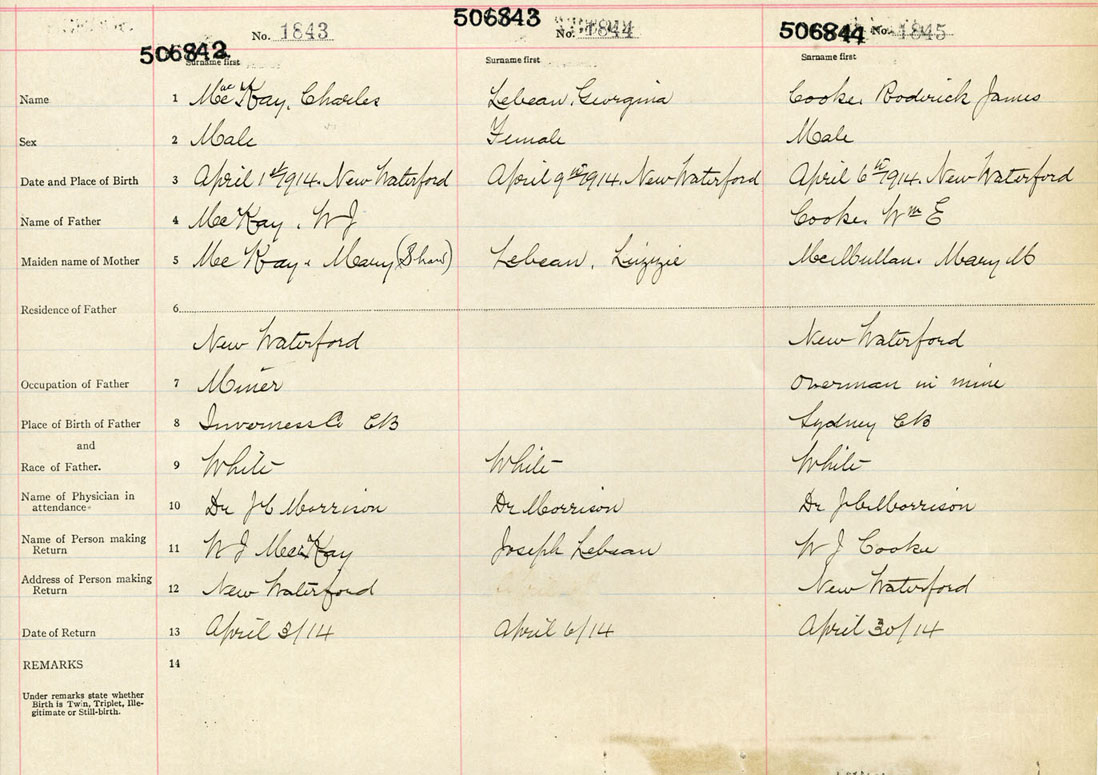 506842 506843 506844
No. 1843 No. 1844 No. 1845
Surname first Surname first Surname first
Name 1 MacKay, Charles Lebean, Georgina Cooke, Roderick James
Sex 2 Male Female Male
Date and Place of Birth 3 April 1st 1914. New Waterford April 9th 1914. New Waterford April 6th 1914. New Waterford
Name of Father 4 McKay, W J Cooke, Wm E
Maiden name of Mother 5 McKay, Mary (Shaw) Lebean, Lizizie McMullan, Mary M
Residence of Father 6
New Waterford New Waterford
Occupation of Father 7 Miner Overman in mine
Place of Birth of Father 8 Inverness Co CB Sydney CB
and
Race of Father. 9 White White White
Name of Physician in
attendance 10 Dr J C Morrison Dr Morrison Dr J C Morrison
Name of Person making
Return 11 W J MacKay Joseph Lebean W J Cooke
Address of Person making
Return 12 New Waterford New Waterford
Date of Return 13 April 3/14 April 6/14 April 30/14
REMARKS 14
Under remarks state whether
Birth is Twin, Triplet, Ille-
gitimate or Still-birth.